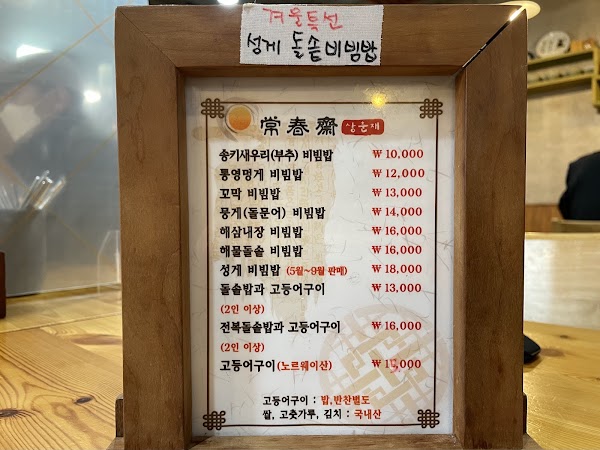 겨울특선
성게 돌솥비빔밥
常春齋 상춘재
송키새우리(부추) 비빔밥 ₩ 10,000
통영멍게 비빔밥 ₩ 12,000
꼬막 비빔밥 ₩ 13,000
뭉게(돌문어) 비빔밥 ₩ 14,000
해삼내장 비빔밥 ₩ 16,000
해물돌솥 비빔밥 ₩ 16,000
성게 비빔밥 (5월~9월 판매) ₩ 18,000
돌솥밥과 고등어구이 ₩ 13,000
(2인 이상)
전복돌솥밥과 고등어구이 ₩ 16,000
(2인 이상)
고등어구이(노르웨이산) ₩
고등어구이 : 밥,반찬별도
쌀, 고춧가루, 김치 : 국내산